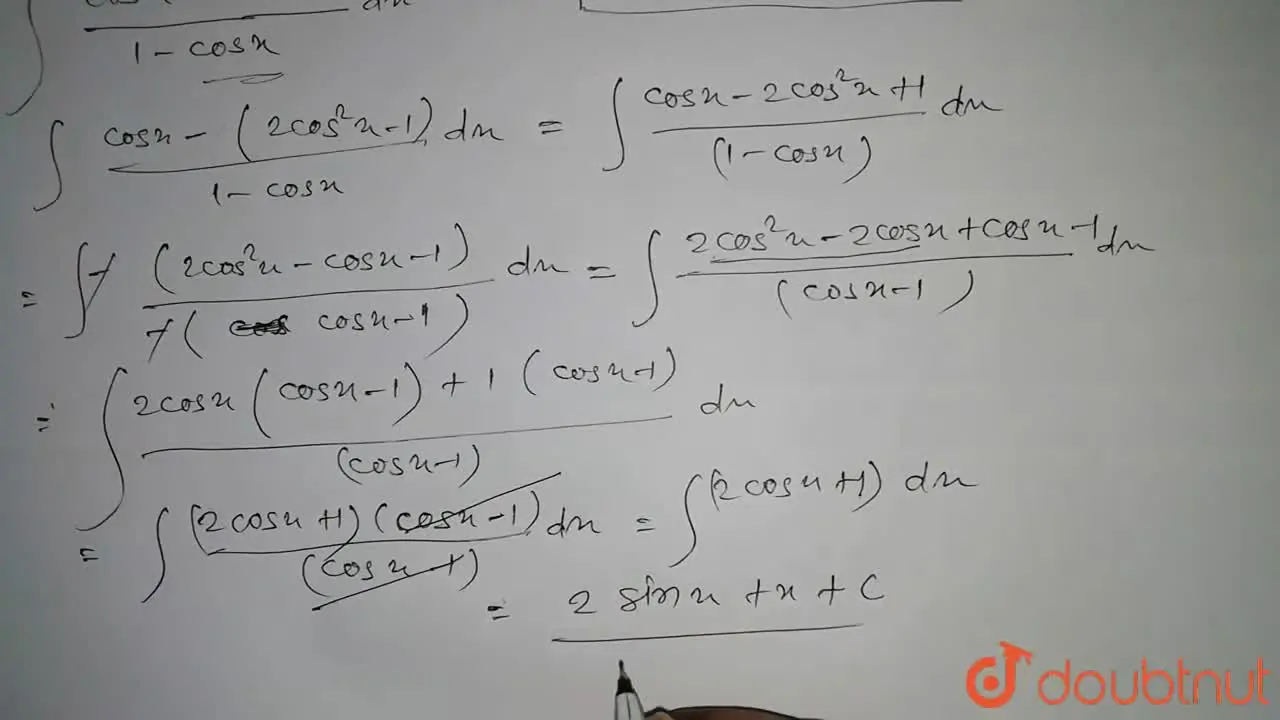 dx
1 - cosx
∫ cosx - (2cos²x-1) dx / 1 - cosx = ∫ cosx - 2cos²x + 1 dx / (1 - cosx)
= ∫ - (2cos²x - cosx - 1) dx / - (cosx - 1) = ∫ 2cos²x - 2cosx + cosx - 1 dx / (cosx - 1)
= ∫ 2cosx (cosx - 1) + 1 (cosx - 1) dx / (cosx - 1)
= ∫ (2cosx + 1) (cosx - 1) dx / (cosx - 1) = ∫ (2cosx + 1) dx
= 2 sinx + x + C
doubtnut